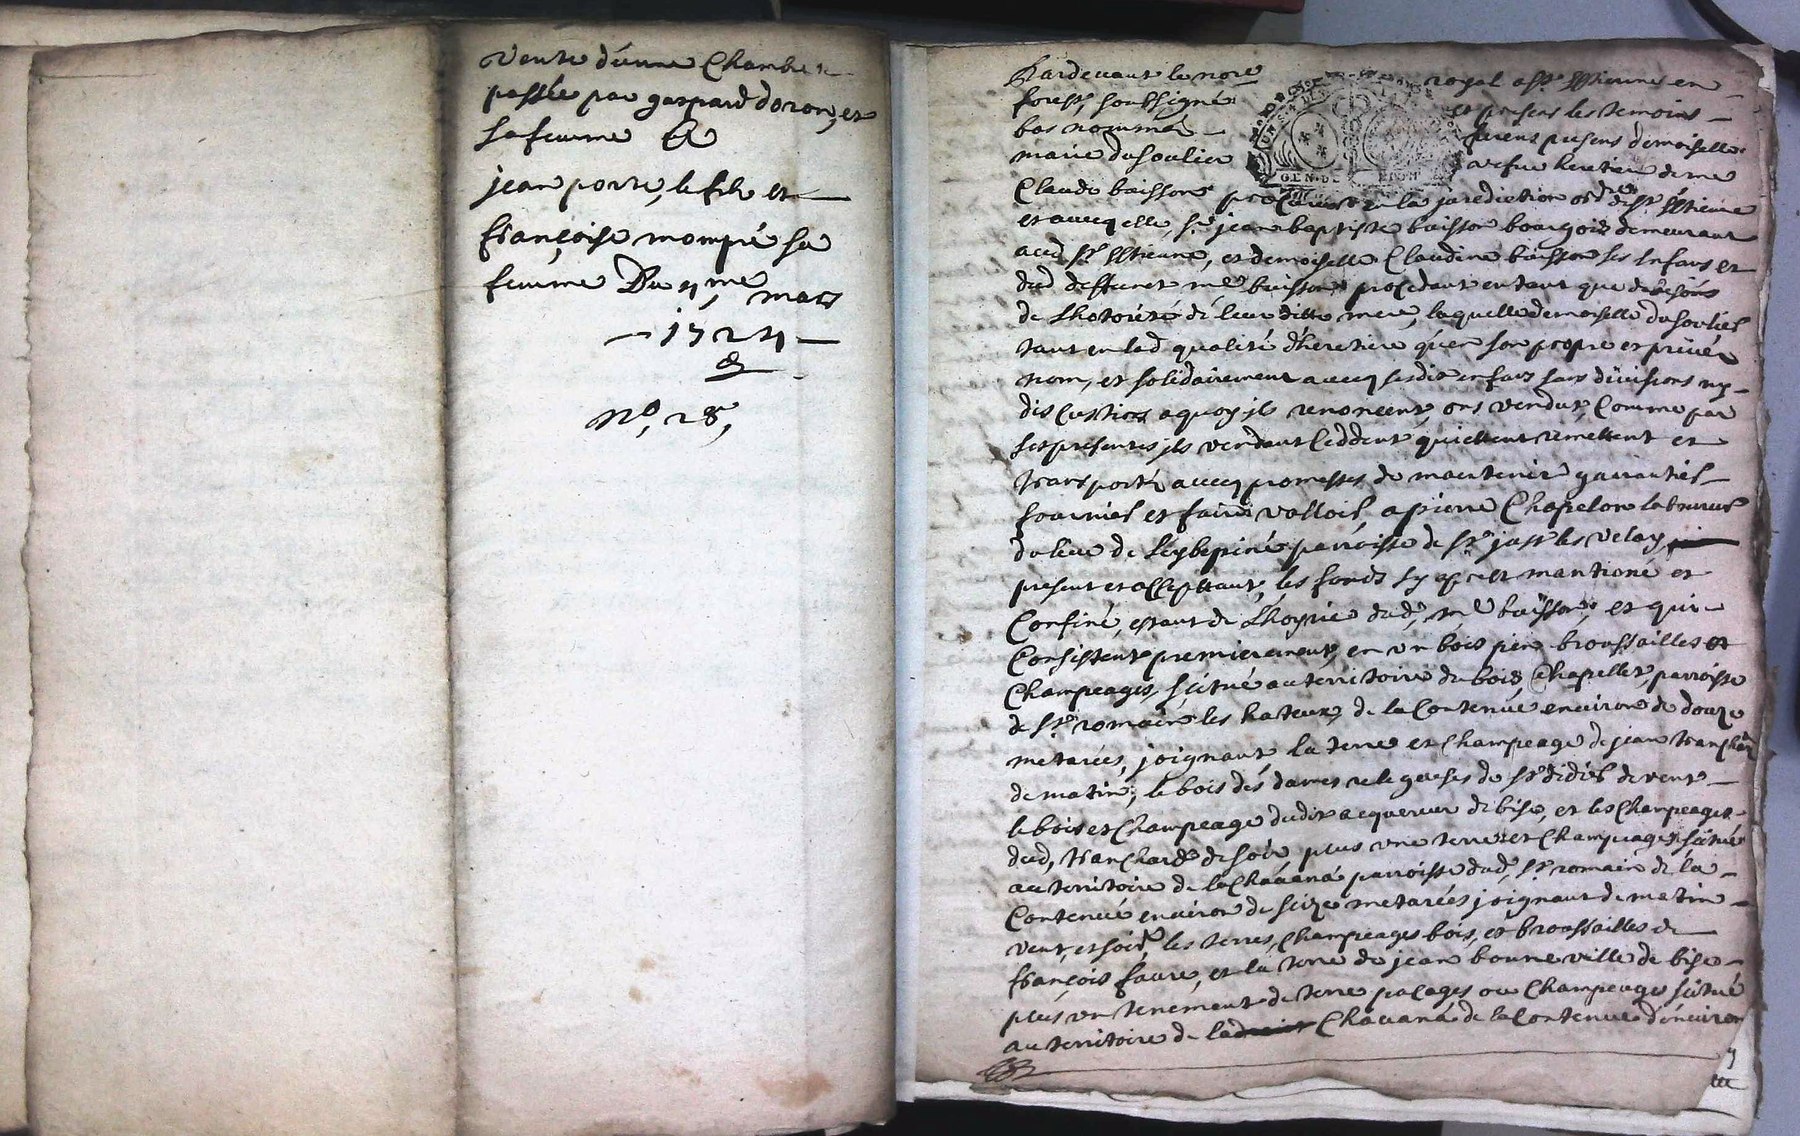 Vente d'unne Chambre
passée par gaspard doron, et
sa femme &
jean porte, le fils et
françoise mompié sa
femme Du 4me mars
1724
No, 28,
Pardevant le nore royal a st. Estienne en
forest, soubsigné et presens les temoins
bas nommés furent presens demoiselle
marie dusoulier vefve heretiere de me
Claude baisson procureur en la juridiction ordre de st. Estienne
et avecq elle, sr. jean baptiste baisson bourgois demeurant
aud st. Estienne, et demoiselle Claudine baisson ses enfans et
dud deffunct me baisson procedant entant que de besoins
de Lhotorité de leur ditte mere, laquelle demoiselle dusoulier
tant en lad qualité d'heretiere qu'en son propre et privé
nom, et solidairement avecq sesdits enfans sans divisions ny
discustions aquoy ils renoncent, ont vendut, Comme par
ses presentes ils vendent Ceddent, quiettent remettent et
transporte avecq promesses de maintenir garantir
fournir et faire valloir a pierre Chapelon laboureur
du lieu de Leybepine parroisse de st. just les velay
present et acceptant, les fonds sy apres mantioné et
Confiné, estant de Lhoyrie dud, me baisson, et qui
Consistent premierement, en un bois pin broussailles et
Champeages, scitué au territoire du bois Chapellet, parroisse
de st. romain les hateux, de la Contenue environ de douze
metarées, joignant, la terre et Champeage de jean tranchard
de matin, le bois dés dames religieuses de st. didier de vent
le bois et Champeage dudit acquereur de bise, et les Champeages
dud, tranchard de soir, plus une terre et Champeages scitué
au territoire de la Chavana parroisse dud, st. romain de la
Contenue environ de seize metarées joignant de matin
vent, et soir, les terres, Champeages bois, et broussailles de
françois faure, et la terre de jean bonneville de bise
plus un tenement de terre pacages ou Champeage scitué
au territoire de la Chavana de la Contenue d'environ